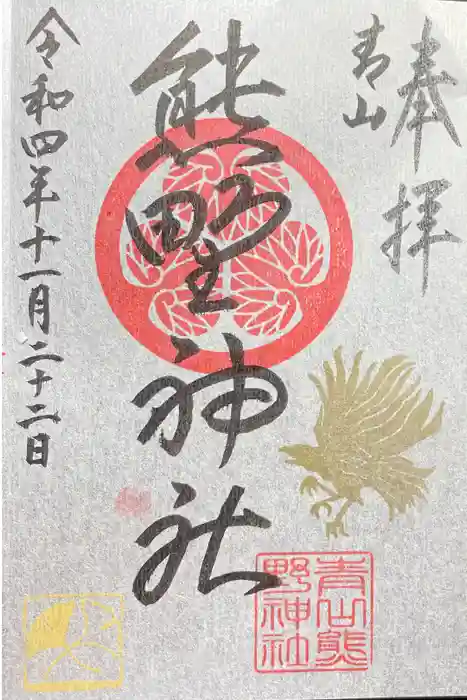 奉拝
青山
熊野神社
令和四年十一月二十二日
青山熊
野神社